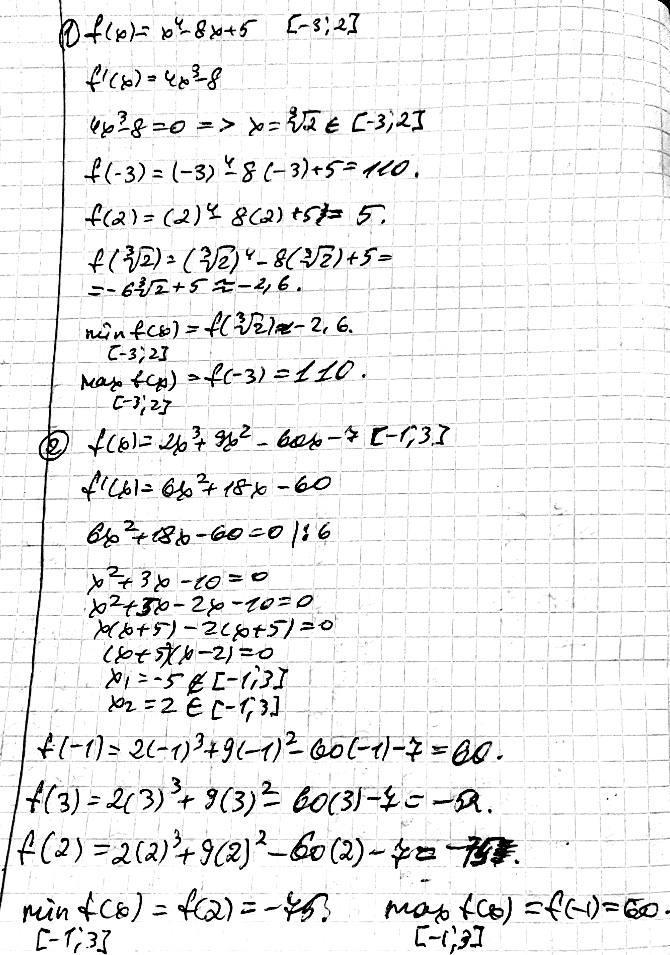 ① f(x)= x⁴-8x+5 [-3;2]
f'(x)=4x³-8
4x³-8=0 => x=∛2 ∈ [-3;2]
f(-3)=(-3)⁴-8(-3)+5=110.
f(2)=(2)⁴-8(2)+5= 5.
f(∛2)=(∛2)⁴-8(∛2)+5=
=-6∛2+5≈-2,6.
min f(x)=f(∛2)≈-2,6.
[-3;2]
max f(x)=f(-3)=110.
[-3;2]
② f(x)=2x³+9x²-60x-7 [-1;3]
f'(x)=6x²+18x-60
6x²+18x-60=0 |:6
x²+3x-10=0
x²+5x-2x-10=0
x(x+5)-2(x+5)=0
(x+5)(x-2)=0
x₁=-5 ∉ [-1;3]
x₂=2 ∈ [-1;3]
f(-1)=2(-1)³+9(-1)²-60(-1)-7=60.
f(3)=2(3)³+9(3)²-60(3)-7=-52.
f(2)=2(2)³+9(2)²-60(2)-7=
min f(x)=f(2)=-75; max f(x)=f(-1)=60.
[-1;3] [-1;3]